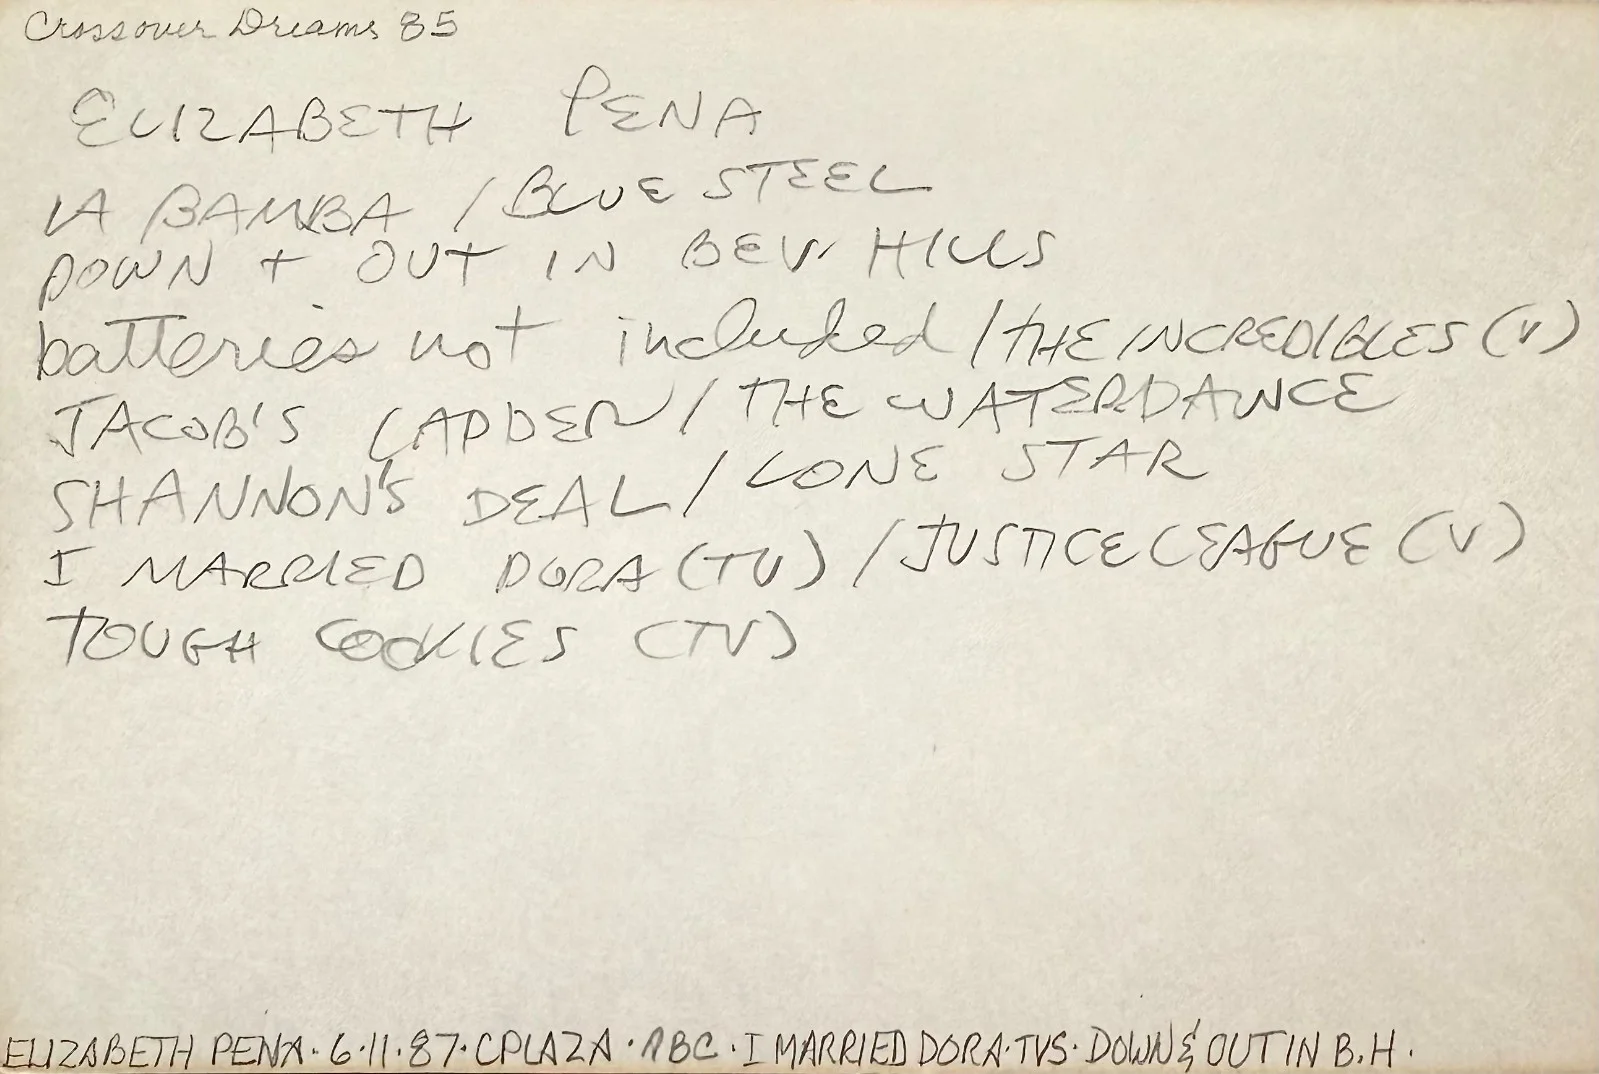 Crossover Dreams 85
ELIZABETH PENA
LA BAMBA / BLUE STEEL
DOWN + OUT IN BEV. HILLS
batteries not included / THE INCREDIBLES (V)
JACOB'S LADDER / THE WATERDANCE
SHANNON'S DEAL / LONE STAR
I MARRIED DORA (TV) / JUSTICE LEAGUE (V)
TOUGH COOKIES (TV)
ELIZABETH PENA · 6·11·87· CPLAZA · ABC · I MARRIED DORA·TVS· DOWN & OUT IN B.H.